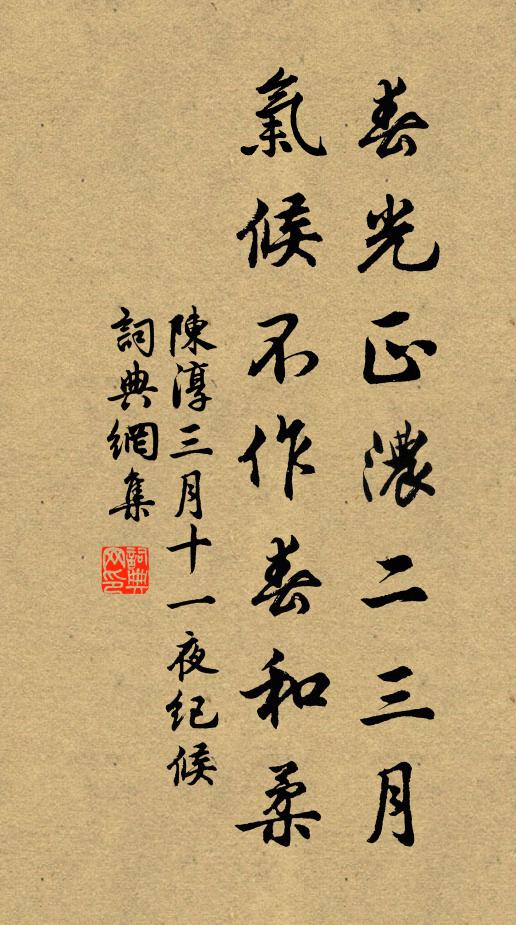 春光正濃二三月
氣候不作春和柔
陳淳三月十一夜纪候
詞典網集
詞典网印